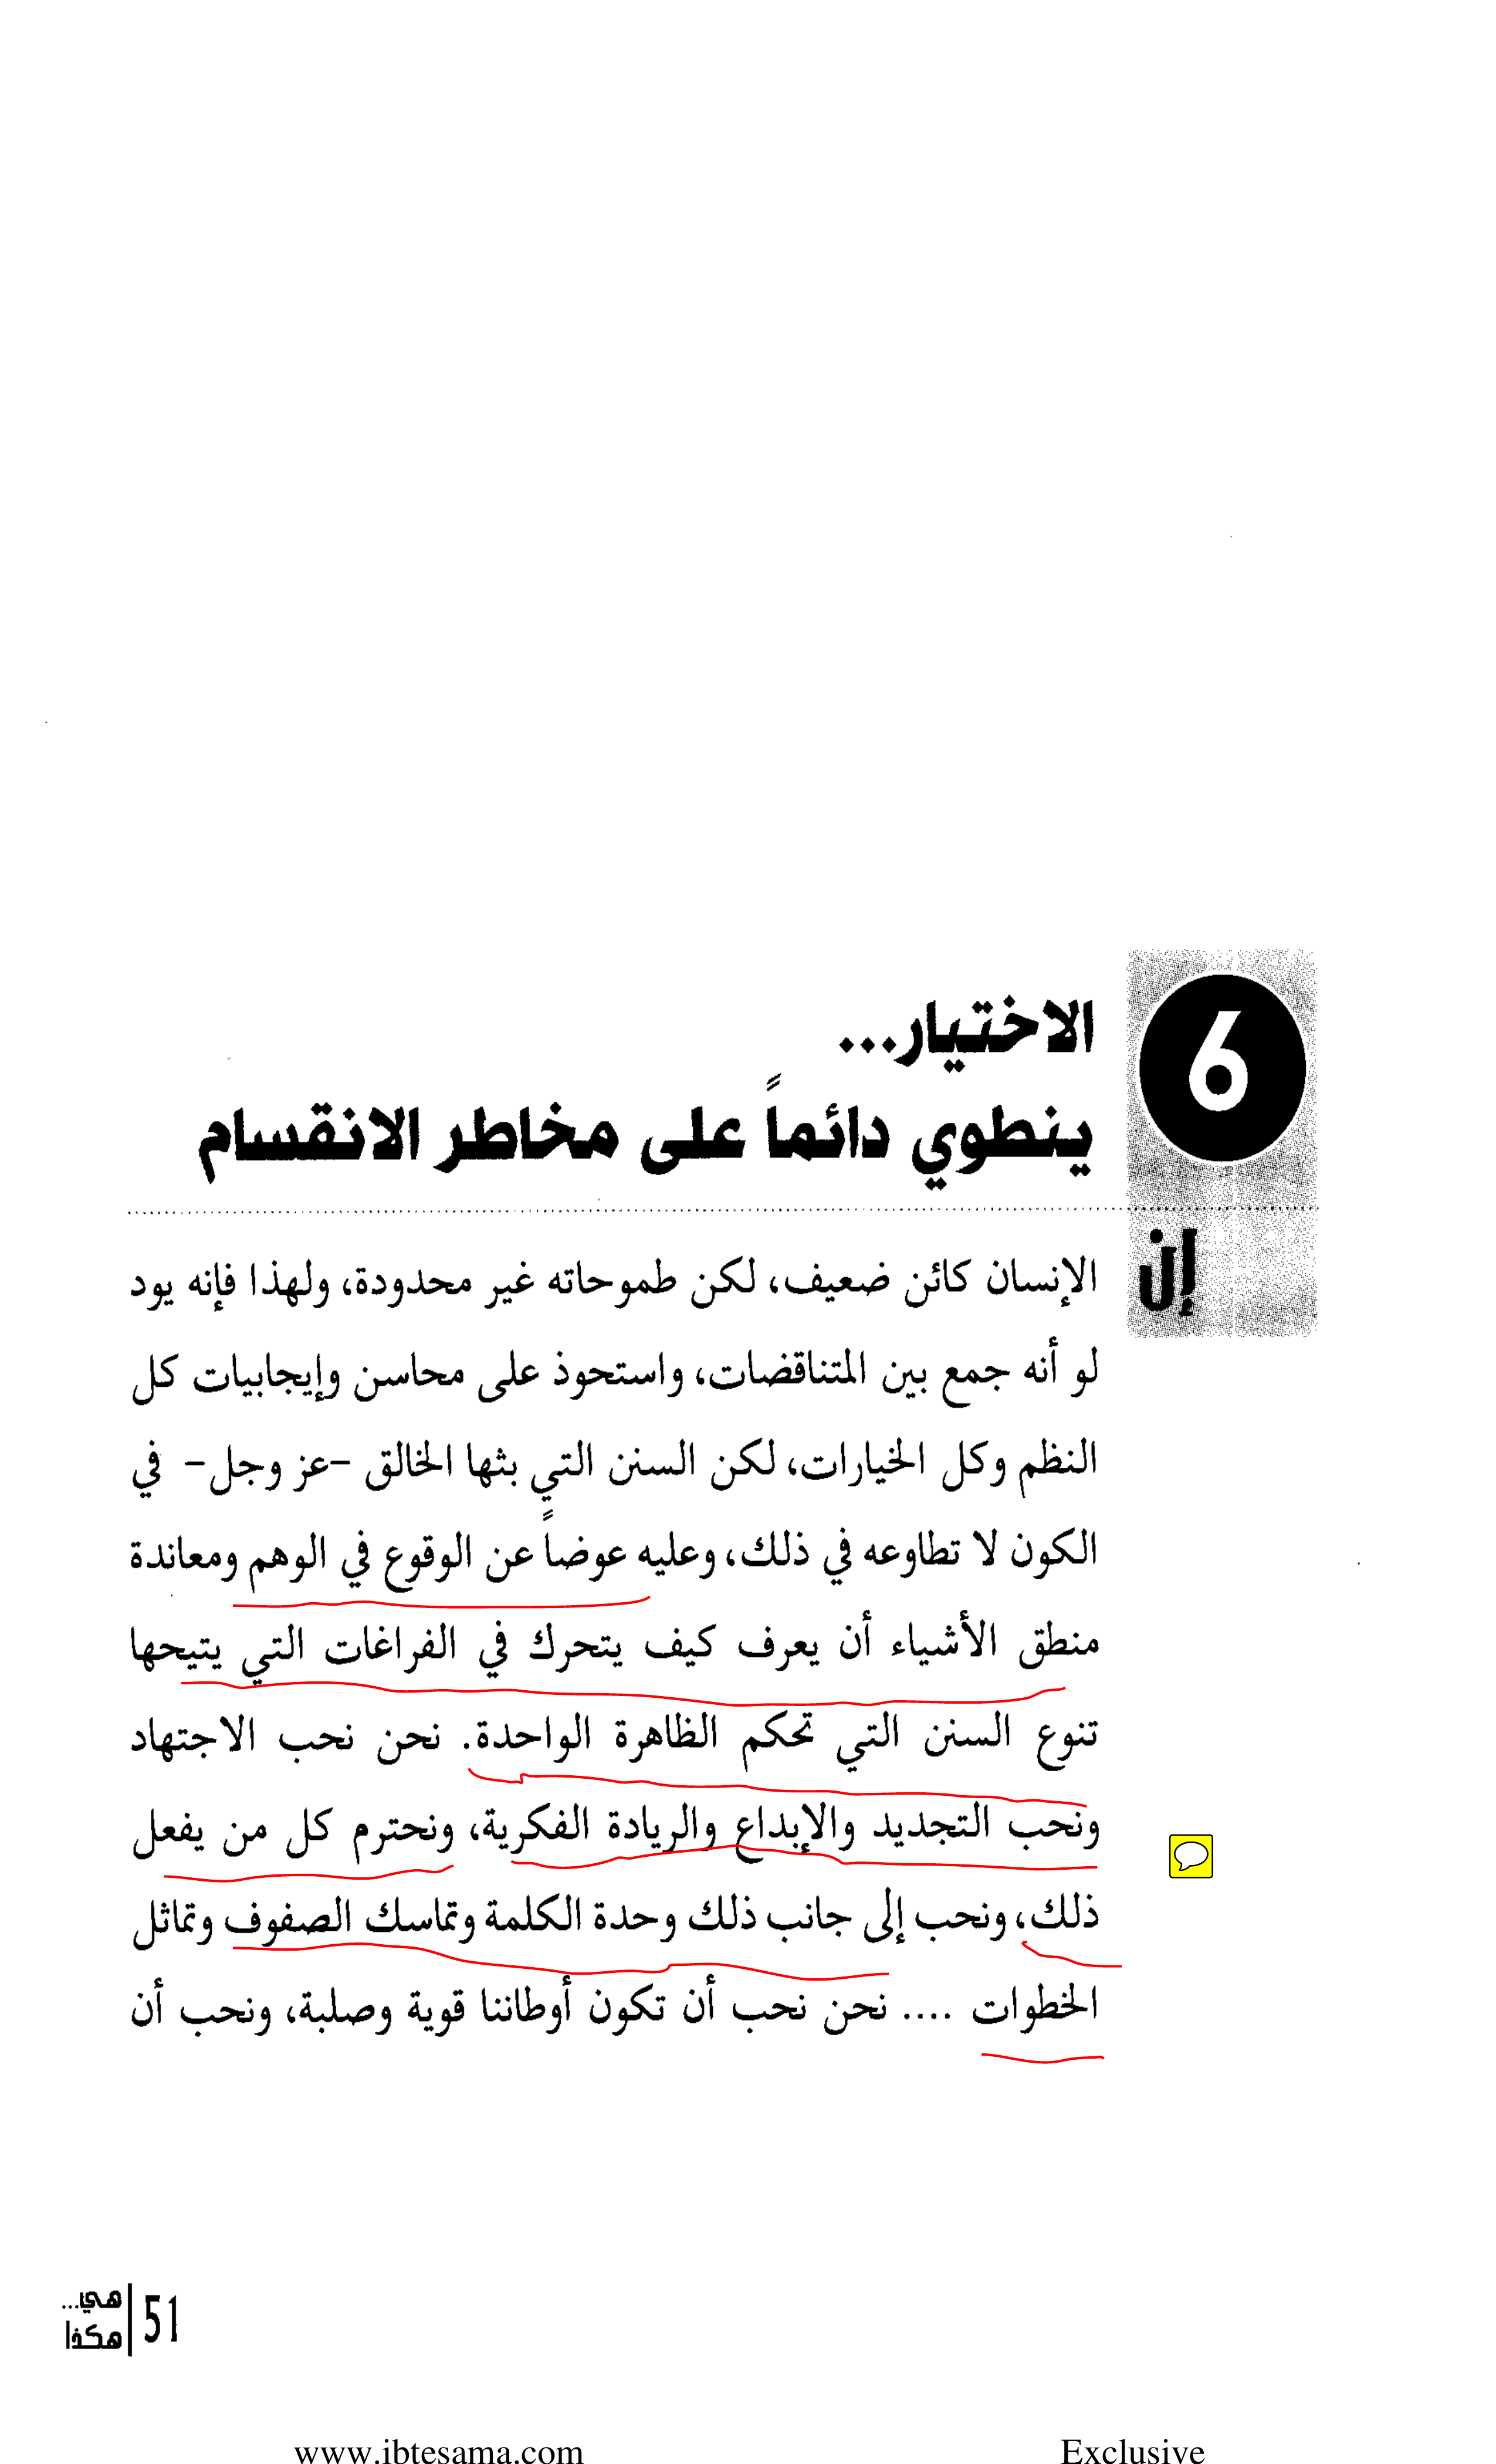 6
الاختيار...
ينطوي دائماً على مخاطر الانقسام
إن الإنسان كائن ضعيف، لكن طموحاته غير محدودة، ولهذا فإنه يود
لو أنه جمع بين المتناقضات، واستحوذ على محاسن وإيجابيات كل
النظم وكل الخيارات، لكن السنن التي بثها الخالق -عز وجل- في
الكون لا تطاوعه في ذلك، وعليه عوضاً عن الوقوع في الوهم ومعاندة
منطق الأشياء أن يعرف كيف يتحرك في الفراغات التي يتيحها
تنوع السنن التي تحكم الظاهرة الواحدة. نحن نحب الاجتهاد
ونحب التجديد والإبداع والريادة الفكرية، ونحترم كل من يفعل
ذلك، ونحب إلى جانب ذلك وحدة الكلمة وتماسك الصفوف وتماثل
الخطوات .... نحن نحب أن تكون أوطاننا قوية وصلبة، ونحب أن
51
هي...
هكذا
www.ibtesama.com Exclusive